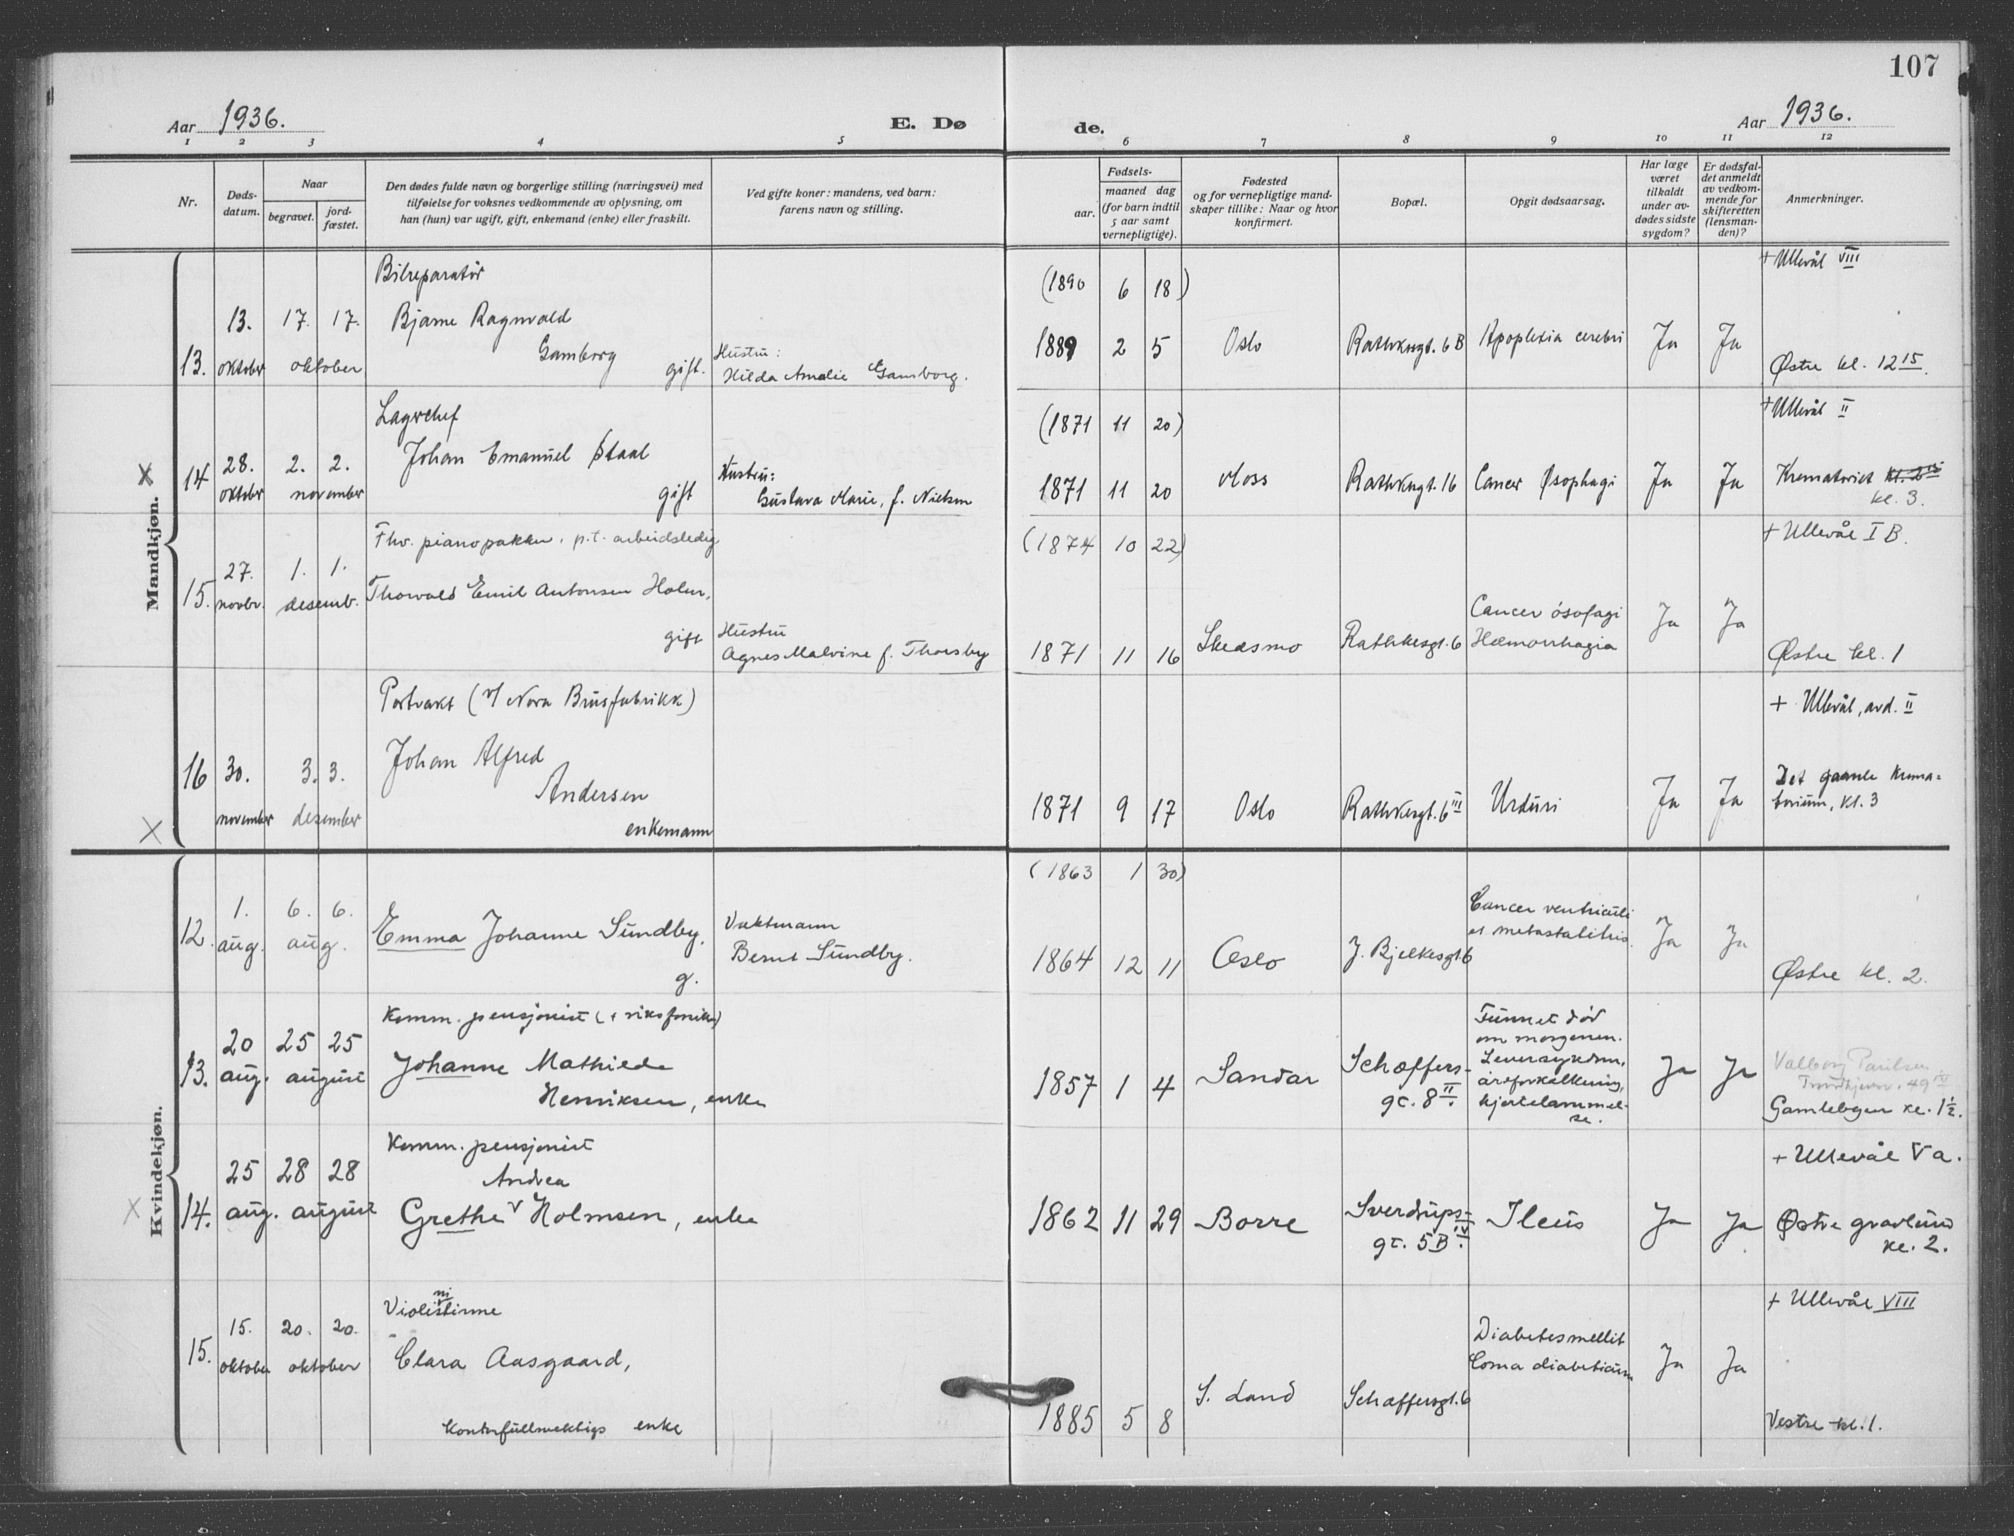 107
Aar 1936.
E. Døde.
Aar 1936.
1 2 3 4 5 6 7 8 9 10 11 12
Nr.
Døds-
datum.
Naar
begravet.
jord-
fæstet.
Den dødes fulde navn og borgerlige stilling (næringsvei) med
tilføielse for voksnes vedkommende av oplysning, om
han (hun) var ugift, gift, enkemand (enke) eller fraskilt.
Ved gifte koner: mandens, ved barn:
farens navn og stilling.
Fødsels-
aar.
maaned dag
(for barn indtil
5 aar samt
vernepligtige).
Fødested
og for vernepligtige mand-
skaper tillike: Naar og hvor
konfirmert.
Bopæl.
Opgit dødsaarsag.
Har læge
været
tilkaldt
under av-
dødes sidste
sygdom?
Er dødsfal-
det anmeldt
av vedkom-
mende for
skifteretten
(lensman-
den)?
Anmerkninger.
Mandkjøn.
13.
13.
oktober
17. 17.
oktober
Bilreparatør
Bjarne Ragnvald
Gamborg
gift.
Hustru:
Hilda Amalie Gamborg.
(1890 6 18)
1889 2 5
Oslo
Rathkesgt. 6 B
Apoplexia cerebri
Ja
Ja
+ Ullevål VIII
Østre kl. 12 15.
X
14
28.
oktober
2. 2.
november
Lagerchef
Johan Emanuel Staal
gift
Hustru:
Gustava Marie, f. Nielsen
(1871 11 20)
1871 11 20
Moss
Rathkesgt. 16
Cancer Øsophagi
Ja
Ja
+ Ullevål II
Krematoriet kl. 2
kl. 3.
15.
27.
novbr.
1. 1.
desemb.
Fhv. pianopakker, p.t. arbeidsledig
Thorvald Emil Antonsen Holm,
gift
Hustru
Agnes Malvine f. Thorsby
(1874 10 22)
1871 11 16
Skedsmo
Rathkesgt. 6
Cancer øsofagi
Hæmorrhagia
Ja
Ja
+ Ullevål I B.
Østre kl. 1
X
16
30.
november
3. 3.
desember
Portvakt (v/ Nora Brusfabrikk)
Johan Alfred
Andersen
enkemann
1871 9 17
Oslo
Rathkesgt. 6 III
Ja
Ja
+ Ullevål, avd. II
Det gamle krema-
torium, kl. 3
Kvindekjøn.
12.
1.
aug.
6. 6.
aug.
Emma Johanne Sundby.
g.
Vaktmann
Bernt Sundby.
(1863 1 30)
1864 12 11
Oslo
J. Bjelkesgt 6
Cancer ventriculi
Ja
Ja
Østre kl. 2.
13.
20
aug.
25 25
august
Komm. pensjonist
Johanne Mathilde
Henriksen, enke
1857 1 4
Sandar
Schæffers-
gt. 8 II.
Funnet død
om morgenen.
Leversykdom,
åreforkalkning,
hjertelammel-
se.
Ja
Ja
Valborg Paulsen
Gamlebyen kl. 1½.
X
14.
25
aug.
28 28
august
Komm. pensjonist
Andrea
Grethe v Holmsen, enke
1862 11 29
Borre
Sverdrups-
gt. 5B IV.
Ileus
Ja
Ja
+ Ullevål V a.
Østre gravlund
kl. 2.
15.
15.
oktober
20. 20.
oktober
ni
Violistinne
Clara Aasgaard,
Kontorfullmektigs enke
1885 5 8
S. Land
Schæffersgt. 6
Diabetes mellit
Coma diabeticum
Ja
Ja
+ Ullevål VIII
Vestre kl. 1.